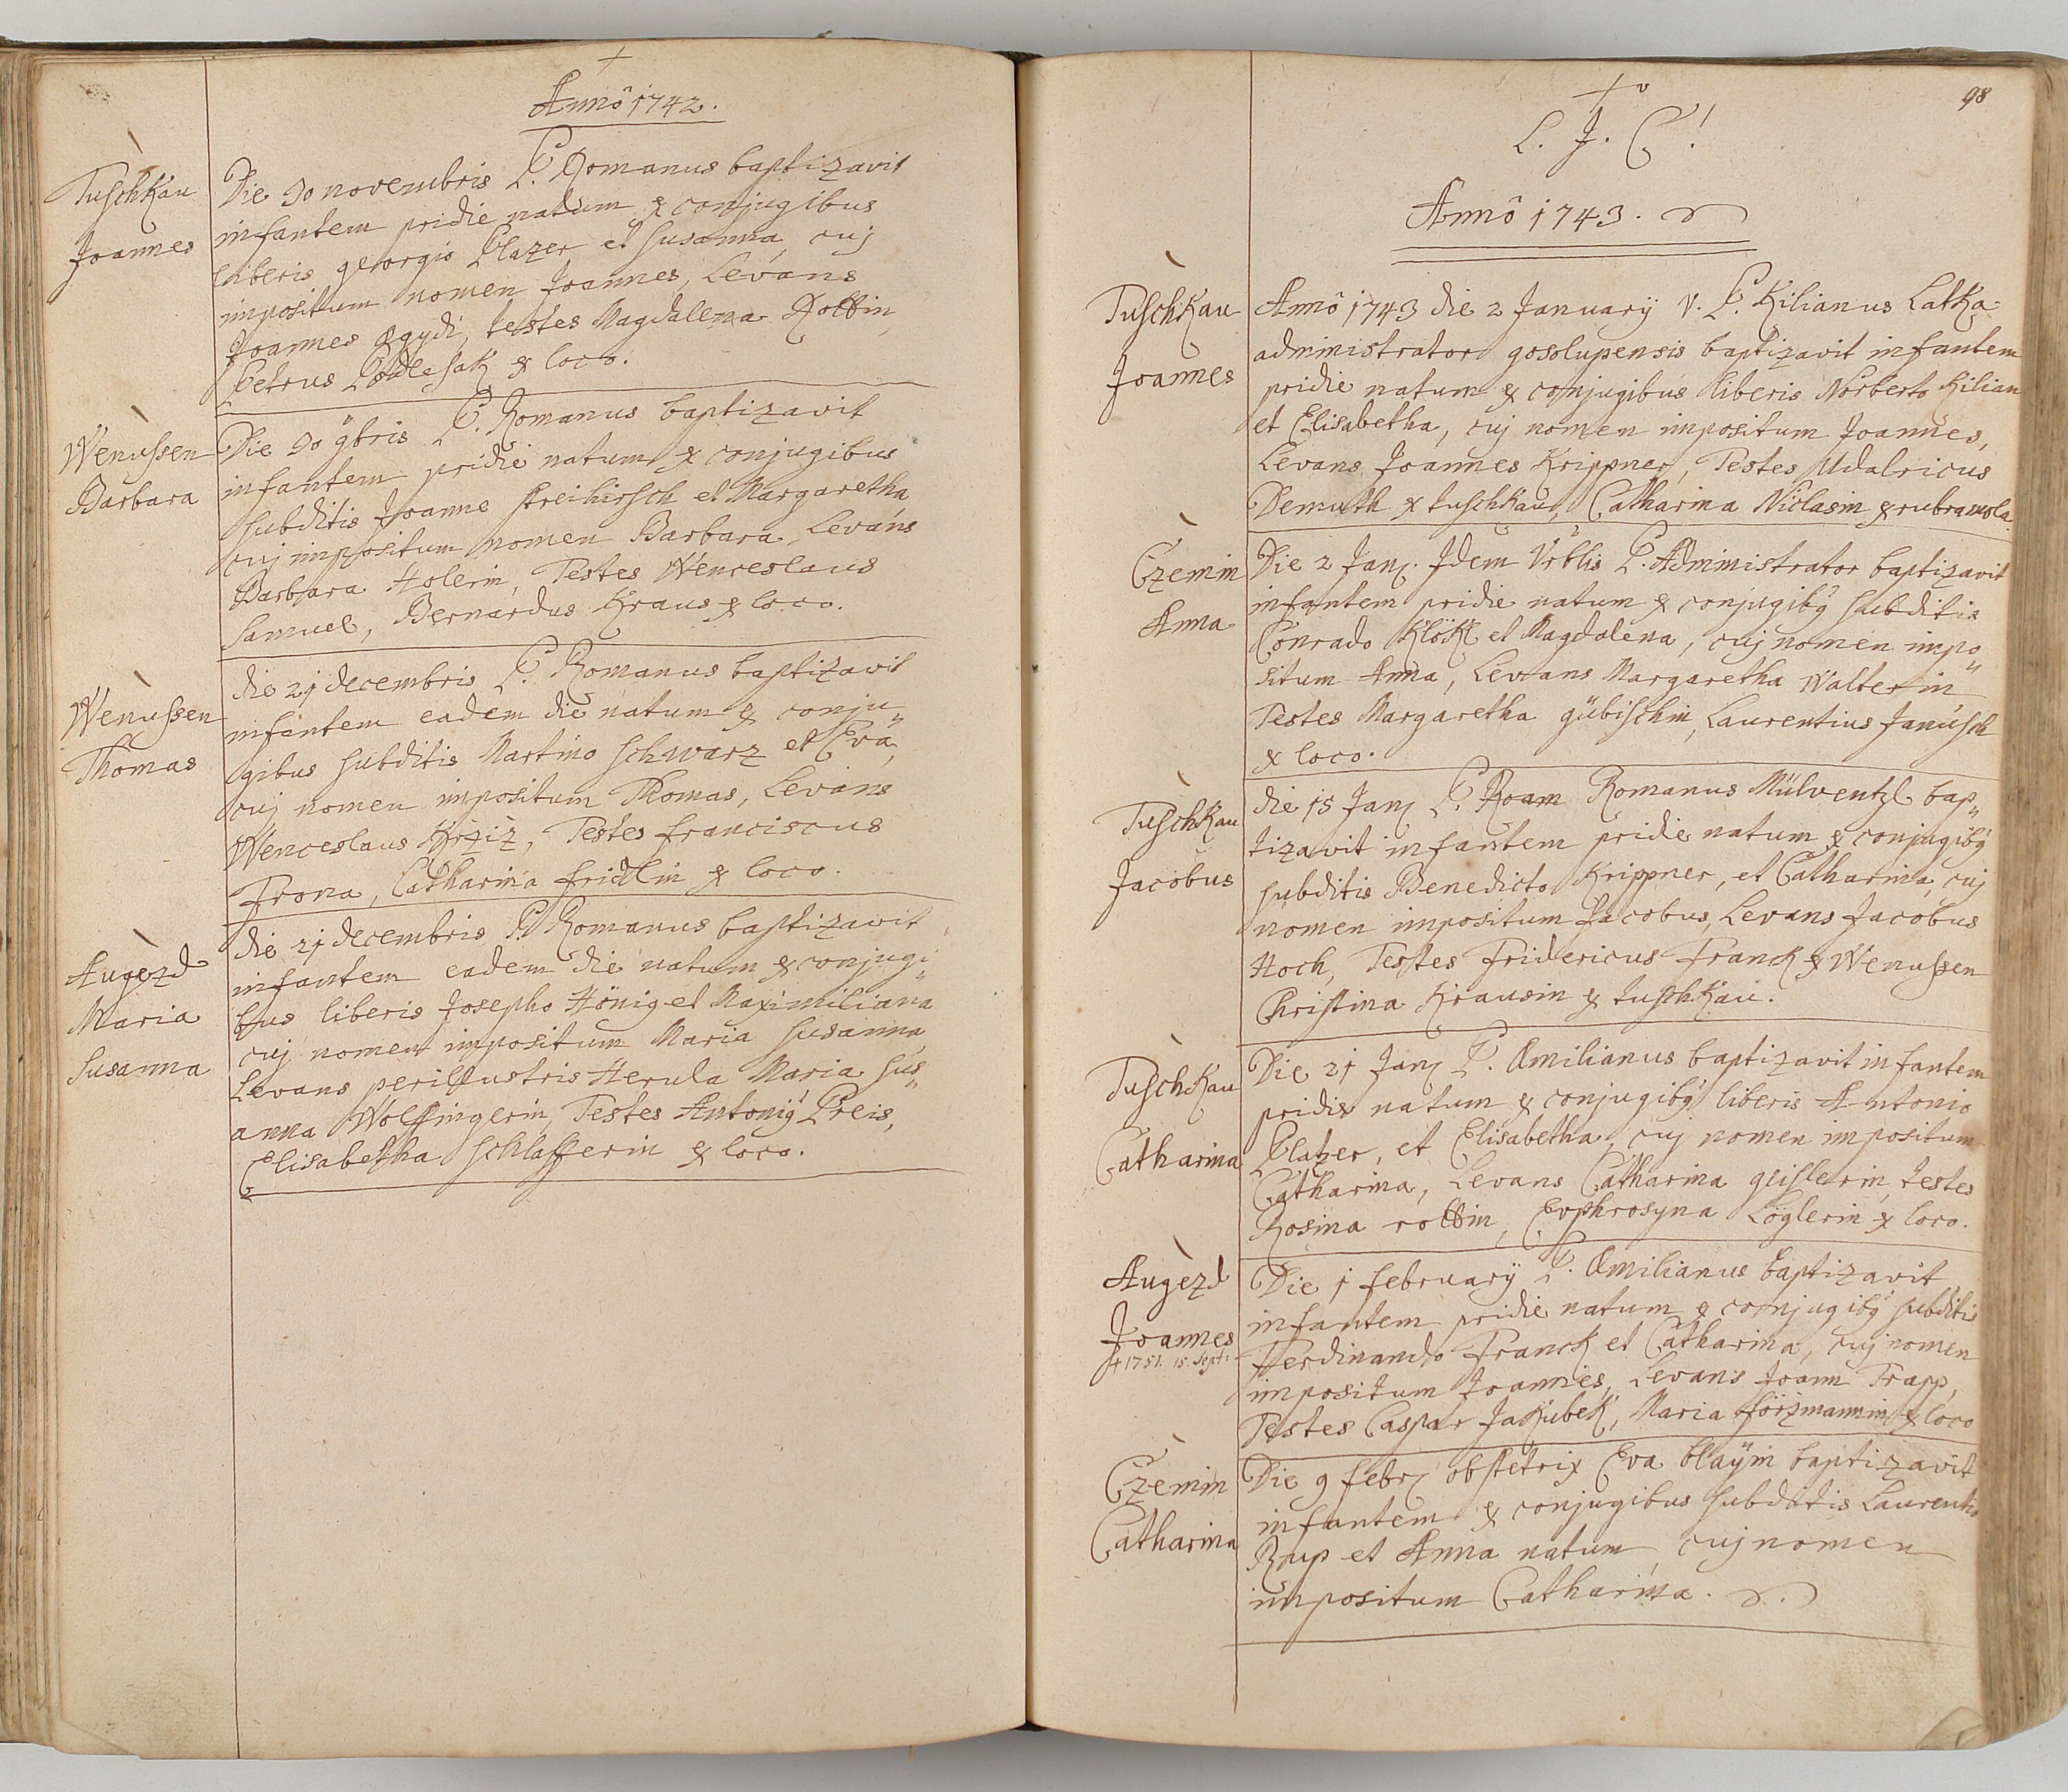 Annô 1742.
Tuschkau
Joannes
Die 30 novembris P. Romanus baptizavit
infantem pridie natum ex conjugibus
liberis georgio Plazer et Susanna, cuj
impositum nomen Joannes, Levans
Joannes Ægydi, testes Magdalena Rottin,
Petrus Podlesak ex loco.
Wenussen
Barbara
Die 30 9bris P. Romanus baptizavit
infantem pridie natum ex conjugibus
subditis Joanne Streihirsch et Margaretha
cuj impositum nomen Barbara, Levans
Barbara Holerin, Testes Wenceslaus
Samuel, Bernardus Kraus ex loco.
Wenussen
Thomas
die 21 decembris P. Romanus baptizavit
infantem eadem die natum ex conju„
gibus subditis Martino Schwarz et Eva,
cuj nomen impositum Thomas, Levans
Wenceslaus Krziz, Testes franciscus
Frona, Catharina fridlin ex loco.
Augezd
Maria
Susanna
die 21 decembris P. Romanus baptizavit
infantem eadem die natum ex conjugi„
bus liberis Josepho Hönig et Maximiliana
cuj nomen impositum Maria Susanna,
Levans perillustris Herula Maria Sus„
anna Wolffingerin, Testes Antonig Preis,
Elisabetha Schlafferin ex loco.
98
L. J. C!
Annô 1743.
Tuschkau
Joannes
Annô 1743 die 2 January V. P. Kilianus Latka
administrator gosolupensis baptizavit infantem
pridie natum ex conjugibus liberis Norberto Kilian
et Elisabetha, cuj nomen impositum Joannes,
Levans Joannes Krippner, Testes Udalricus
Demuth ex tuschkau, Catharina Niclasin ex rubra mola.
Czemin
Anna
Die 2 Janj. Idem Vrblis P. Administrator baptizavit
infantem pridie natum ex conjugibg subditis
Conrado Klökl et Magdalena, cuj nomen impo„
situm Anna, Levans Margaretha Walterin
Testes Margaretha gübischin, Laurentius Janusch
ex loco.
Tuschkau
Jacobus
die 15 Janj P. Roam Romanus Mülventzl bap„
tizavit infantem pridie natum ex conjugibg
subditis Benedicto Krippner, et Catharina, cuj
nomen impositum Jacobus, Levans Jacobus
Hoch, Testes Fridericus Franck ex Wenussen
Christina Krausin ex tuschkau.
Tuschkau
Catharina
Die 21 Janj P. Æmilianus baptizavit infantem
pridie natum ex conjugibg liberis Antonio
Platzer, et Elisabetha, cuj nomen impositum
Catharina, Levans Catharina geislerin, testes
Rosina rottin, Evphrosyna Löglerin ex loco.
Augezd
Joannes
+ 1751. 15. Sept:
Die 1 february P. Æmilianus baptizavit
infantem pridie natum ex conjugibg subditis
Ferdinando Franck et Catharina, cuj nomen
impositum Joannes, Levans Joann Trapp,
Testes Caspar Jakubek, Maria förzmannin ex loco
Czemin
Catharina
Die 9 febrj obstetrix Eva blaÿin baptizavit
infantem ex conjugibus subditis Laurentio
Raup et Anna natum, cuj nomen
impositum Catharina.